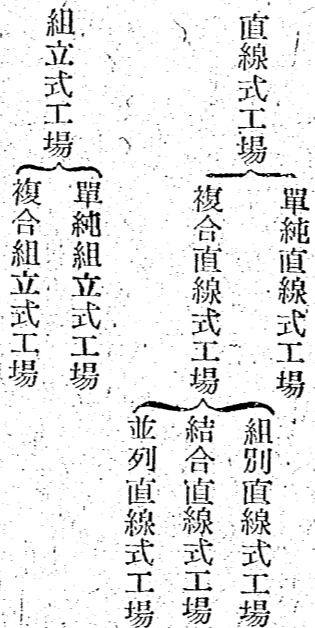 直線式工場
單純直線式工場
複合直線式工場
組別直線式工場
結合直線式工場
並列直線式工場
組立式工場
單純組立式工場
複合組立式工場